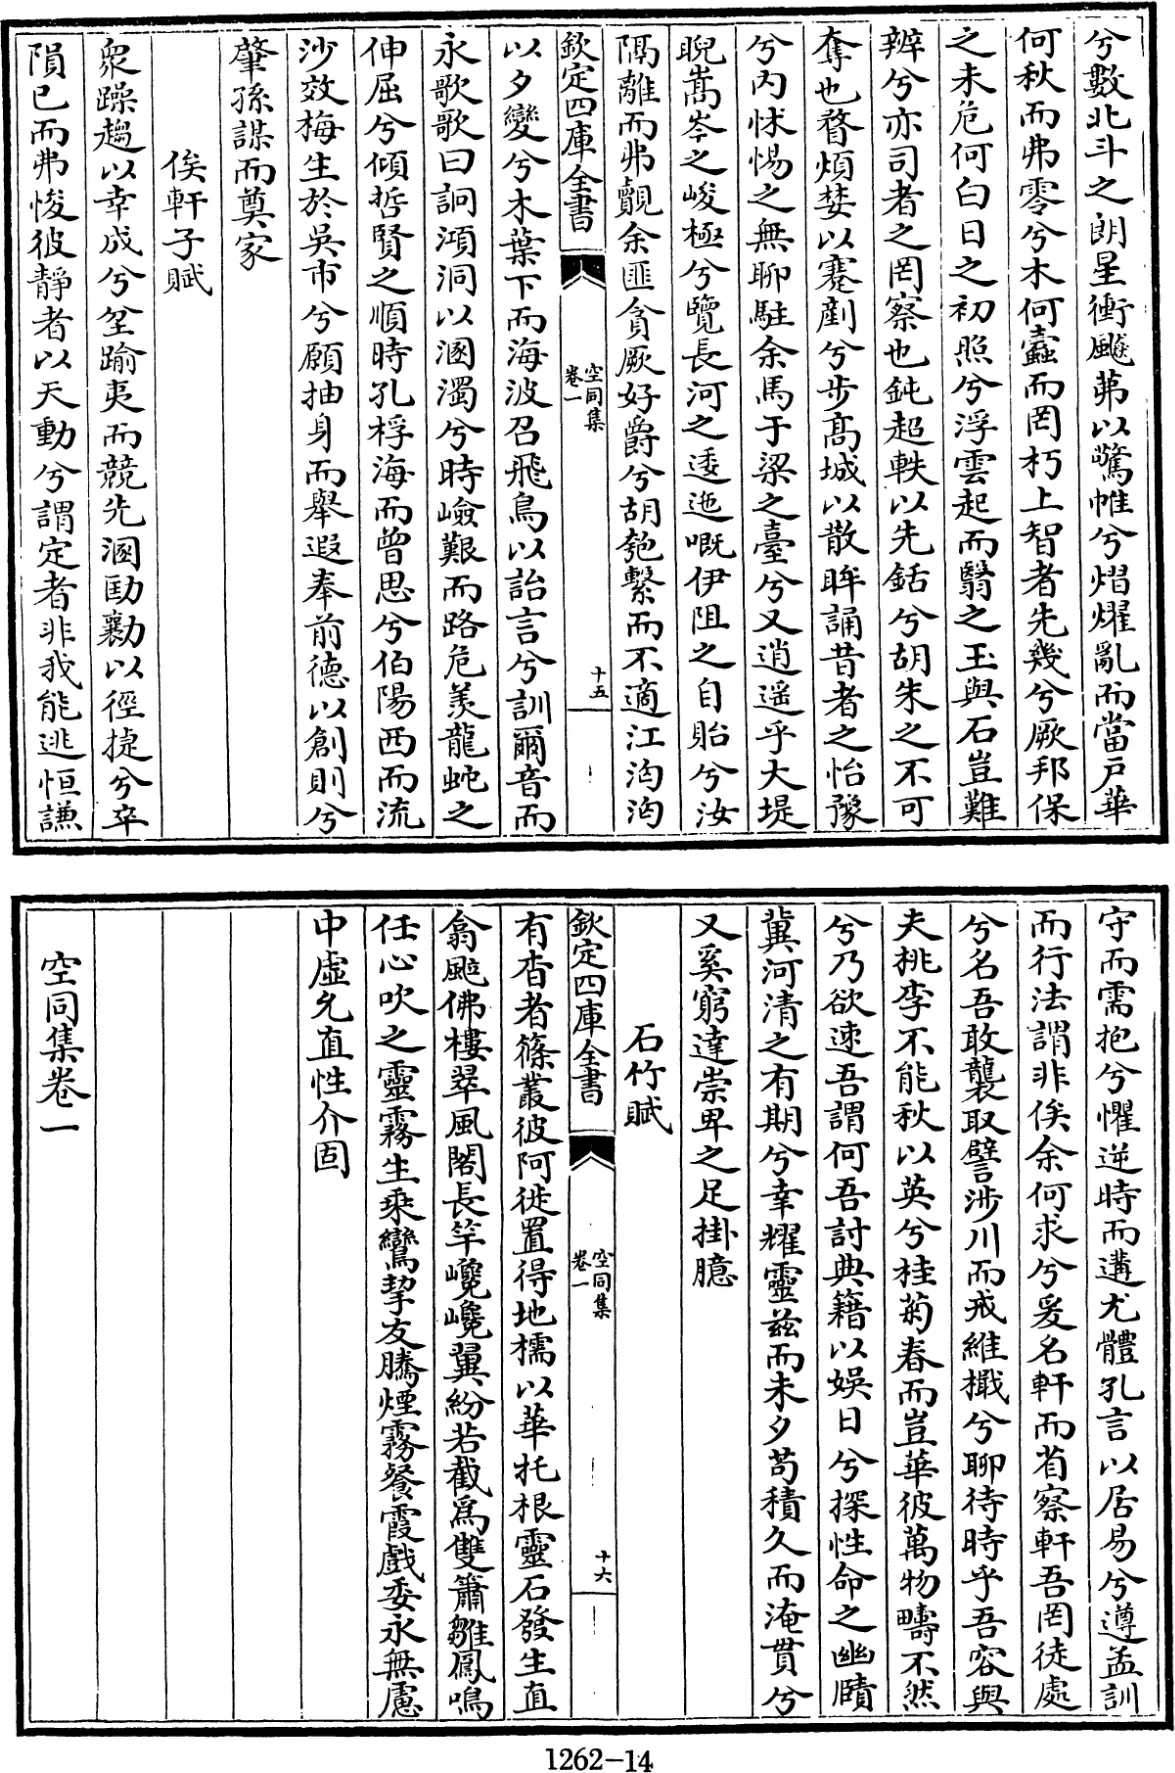 兮數北斗之朗星衝飇茀以驚帷兮熠燿亂而當戶華
何秋而弗零兮木何蠧而罔朽上智者先幾兮厥邦保
之未危何白日之初照兮浮雲起而翳之玉與石豈難
辨兮亦司者之罔察也鈍超軼以先銛兮胡朱之不可
奪也瞀煩婪以蹇劃兮步高城以散眸誦昔者之怡豫
兮内怵惕之無聊駐余馬于梁之臺兮又逍遥乎大堤
睨嵩岑之峻極兮覽長河之逶迤嘅伊阻之自貽兮汝
隔離而弗覿余匪貪厥好爵兮胡匏繫而不適江洶洶
欽定四庫全書
空同集
卷一
十五
以夕變兮木葉下而海波召飛鳥以詒言兮訓爾音而
永歌歌曰詷澒洞以溷濁兮時嶮艱而路危羨龍蛇之
伸屈兮傾哲賢之順時孔桴海而曾思兮伯陽西而流
沙效梅生於吳市兮願抽身而舉遐奉前德以創則兮
肇孫謀而奠家
俟軒子賦
衆躁趨以幸成兮坌踰夷而競先溷劻勷以徑捷兮卒
隕已而弗悛彼靜者以天動兮謂定者非我能逃恒謙
守而需抱兮懼逆時而遘尤體孔言以居易兮遵孟訓
而行法謂非俟余何求兮爰名軒而省察軒吾罔徒處
兮名吾敢襲取譬涉川而戒維檝兮聊待時乎吾容與
夫桃李不能秋以英兮桂菊春而豈華彼萬物疇不然
兮乃欲速吾謂何吾討典籍以娱日兮探性命之幽賾
冀河清之有期兮幸耀靈兹而未夕苟積久而淹貫兮
又奚窮達崇卑之足掛臆
石竹賦
欽定四庫全書
空同集
卷一
十六
有杳者篠叢彼阿徙置得地檽以華托根靈石發生直
翕䬃佛樓翠風閣長竿巉巉翼紛若截爲雙簫雛鳳鳴
任心吹之靈霧生乘鸞挈友騰煙霧餐霞戲委永無慮
中虛允直性介固
空同集卷一
1262-14